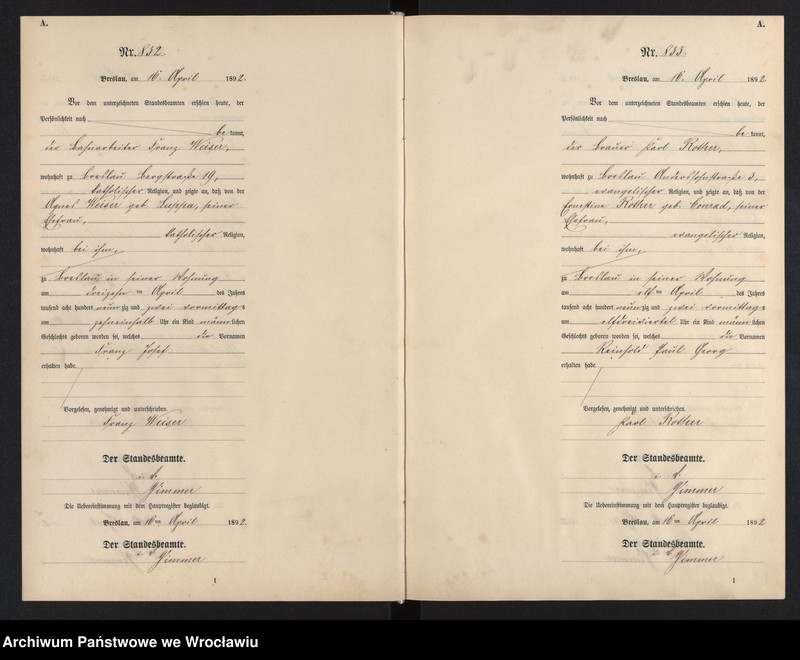 A.
Nr. 832.
Breslau, am 16. April 1892.
Vor dem unterzeichneten Standesbeamten erschien heute, der
Persönlichkeit nach
be kannt,
der Bahnarbeiter Franz Weiser,
wohnhaft zu Breslau Bergstraße 19,
katholischer Religion, und zeigte an, daß von der
Agnes Weiser geb. Suppa, seiner
Ehefrau,
katholischer Religion,
wohnhaft bei ihm,
zu Breslau in seiner Wohnung
am dreizehn ten April des Jahres
tausend acht hundert neun zig und zwei vormittags
um zehneinhalb Uhr ein Kind männ lichen
Geschlechts geboren worden sei, welches die Vornamen
Franz Josef
erhalten habe.
Vorgelesen, genehmigt und unterschrieben.
Franz Weiser
Der Standesbeamte.
Zimmer
Die Uebereinstimmung mit dem Hauptregister beglaubigt.
Breslau, am 16ten April 1892.
Der Standesbeamte.
Zimmer
1
A.
Nr. 833.
Breslau, am 16. April 1892
Vor dem unterzeichneten Standesbeamten erschien heute, der
Persönlichkeit nach
be kannt,
der Brauer Karl Rother,
wohnhaft zu Breslau
evangelischer Religion, und zeigte an, daß von der
Ernestine Rother geb. Conrad, seiner
Ehefrau,
evangelischer Religion,
wohnhaft bei ihm,
zu Breslau in seiner Wohnung
am elf ten April des Jahres
tausend acht hundert neun zig und zwei vormittags
um elfdreiviertel Uhr ein Kind männ lichen
Geschlechts geboren worden sei, welches die Vornamen
Reinhold Paul Georg
erhalten habe.
Vorgelesen, genehmigt und unterschrieben.
Karl Rother
Der Standesbeamte.
Zimmer
Die Uebereinstimmung mit dem Hauptregister beglaubigt.
Breslau, am 16ten April 1892
Der Standesbeamte.
Zimmer
1
Archiwum Państwowe we Wrocławiu